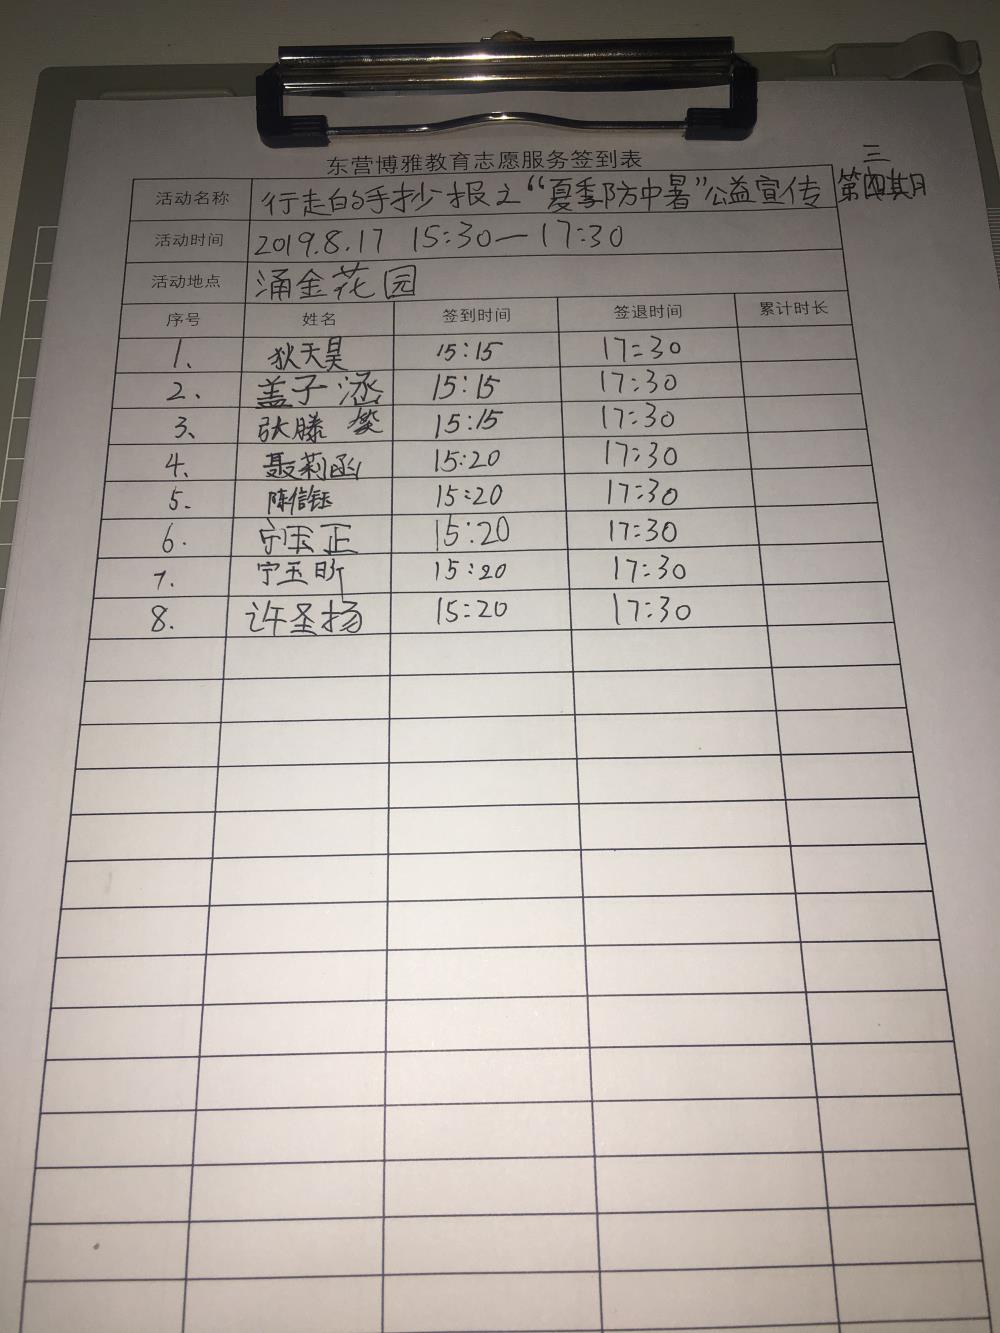 东营博雅教育志愿服务签到表
三
活动名称 行走的手抄报之“夏季防中暑”公益宣传 第四期
活动时间 2019.8.17 15:30—17:30
活动地点 涌金花园
序号 姓名 签到时间 签退时间 累计时长
1、 狄天昊 15:15 17:30
2、 盖子涵 15:15 17:30
3、 张滕 15:15 17:30
4、 聂莉函 15:20 17:30
5、 陈信钰 15:20 17:30
6. 宁玉正 15:20 17:30
7. 宁玉昕 15:20 17:30
8. 许圣扬 15:20 17:30